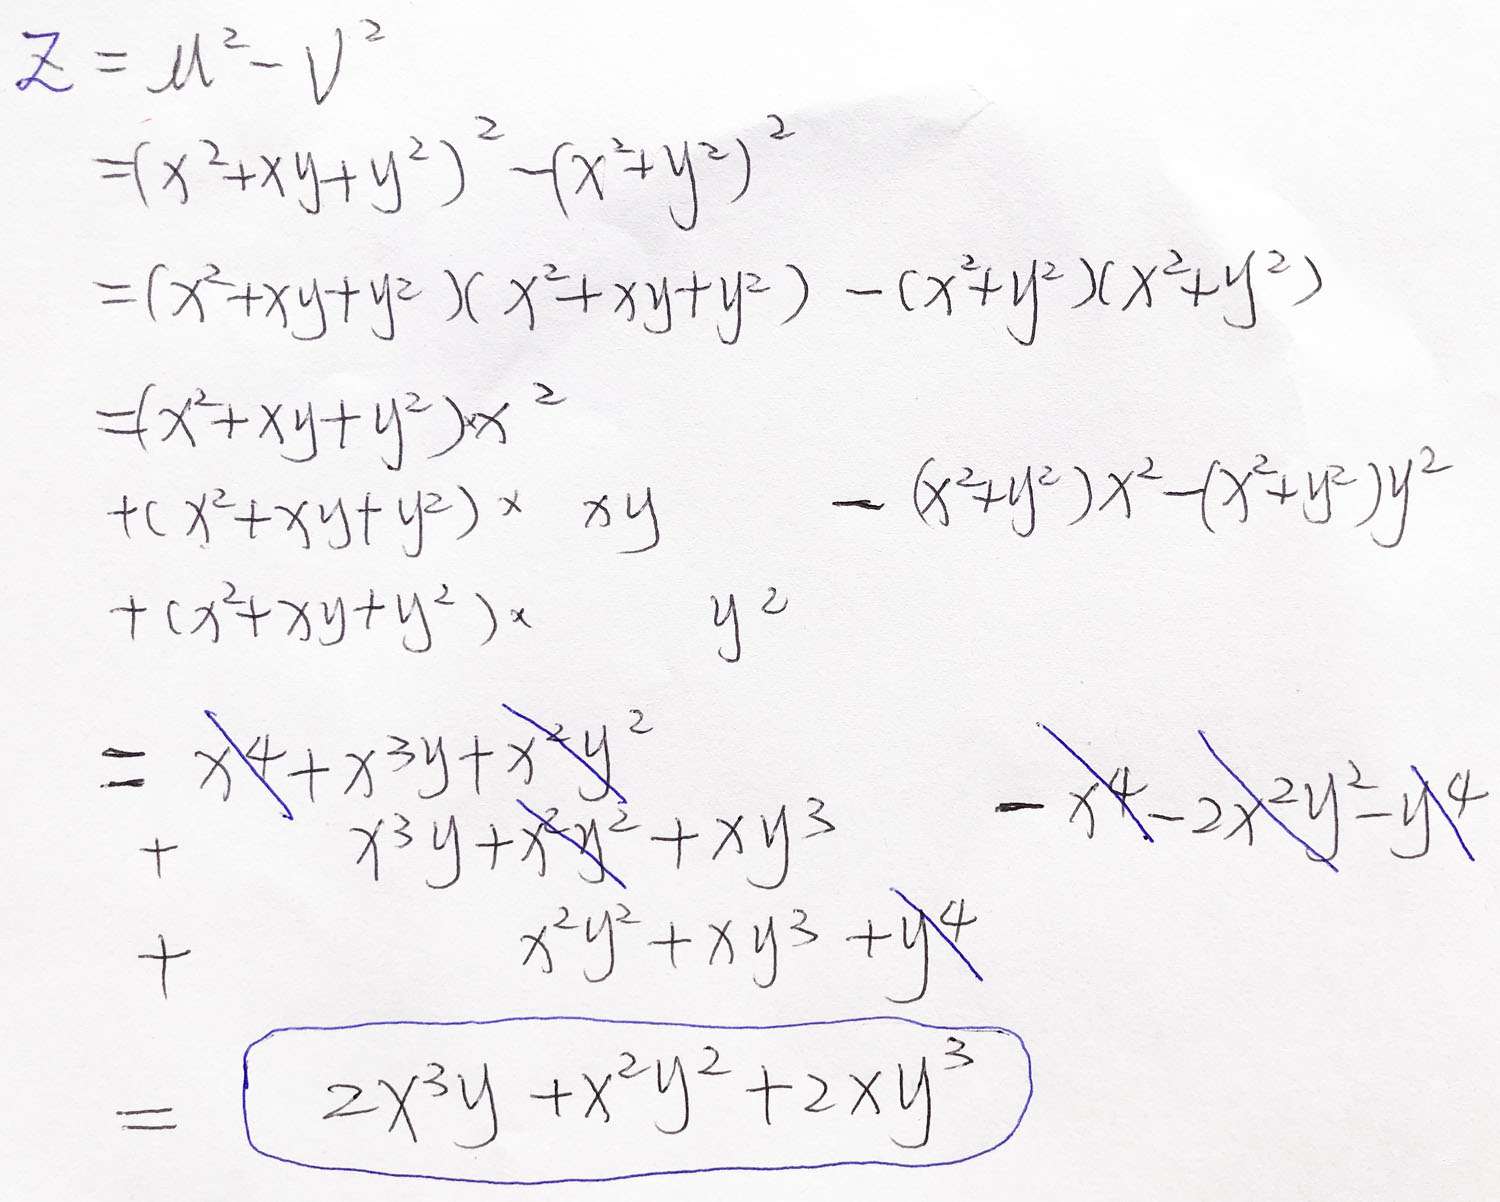 z = u² - v²
= (x² + xy + y²)² - (x² + y²)²
= (x² + xy + y²)(x² + xy + y²) - (x² + y²)(x² + y²)
= (x² + xy + y²) × x²
+ (x² + xy + y²) × xy - (x² + y²)x² - (x² + y²)y²
+ (x² + xy + y²) × y²
= x⁴ + x³y + x²y²
+ x³y + x²y² + xy³ - x⁴ - 2x²y² - y⁴
+ x²y² + xy³ + y⁴
= 2x³y + x²y² + 2xy³